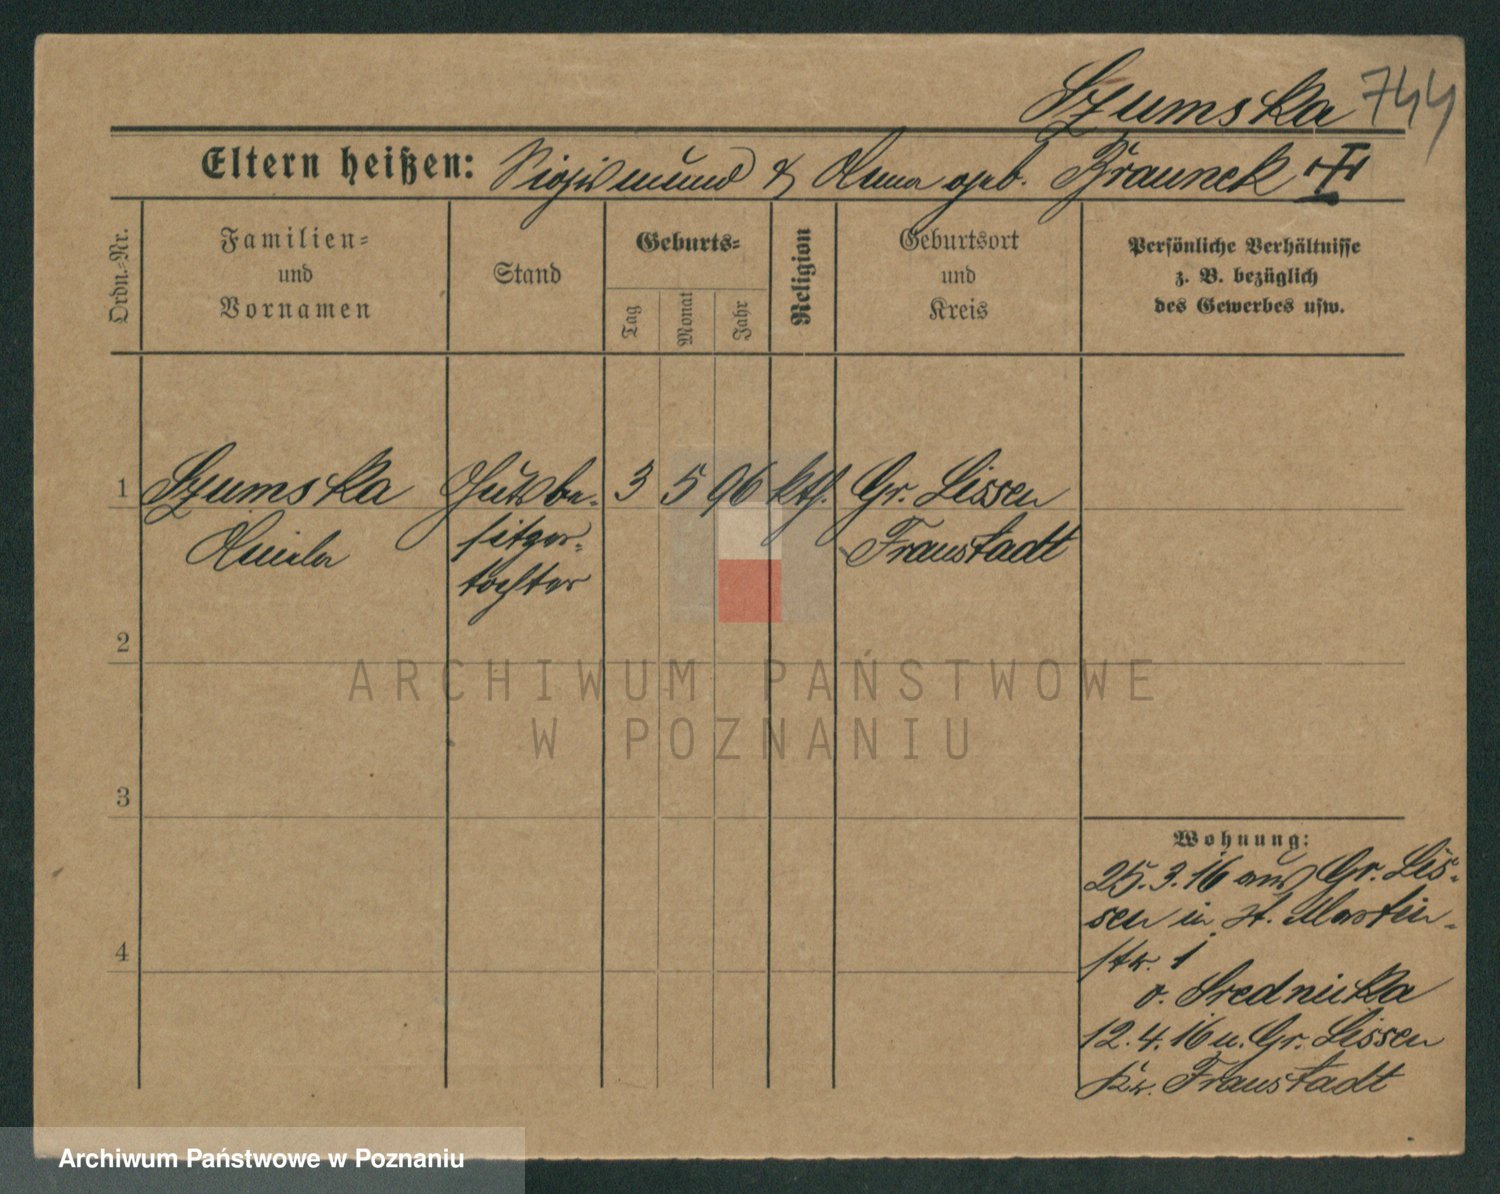 Szumska 744
Eltern heißen: Sigismund & Anna geb. Braunek
Ordn.-Nr.
Familien-
und
Vornamen
Stand
Geburts-
Tag
Monat
Jahr
Religion
Geburtsort
und
Kreis
Persönliche Verhältnisse
z. B. bezüglich
des Gewerbes usw.
1 Szumska Gutsbe- 3 5 96 kth. Gr. Lissen
Aniela sitzer- Fraustadt
tochter
2
3
4
ARCHIWUM PAŃSTWOWE
W POZNANIU
Wohnung:
25.3.16 aus Gr. Lis-
sen in St. Martin-
str. 1
b. Srednicka
12.4.16 n. Gr. Lissen
Kr. Fraustadt
Archiwum Państwowe w Poznaniu